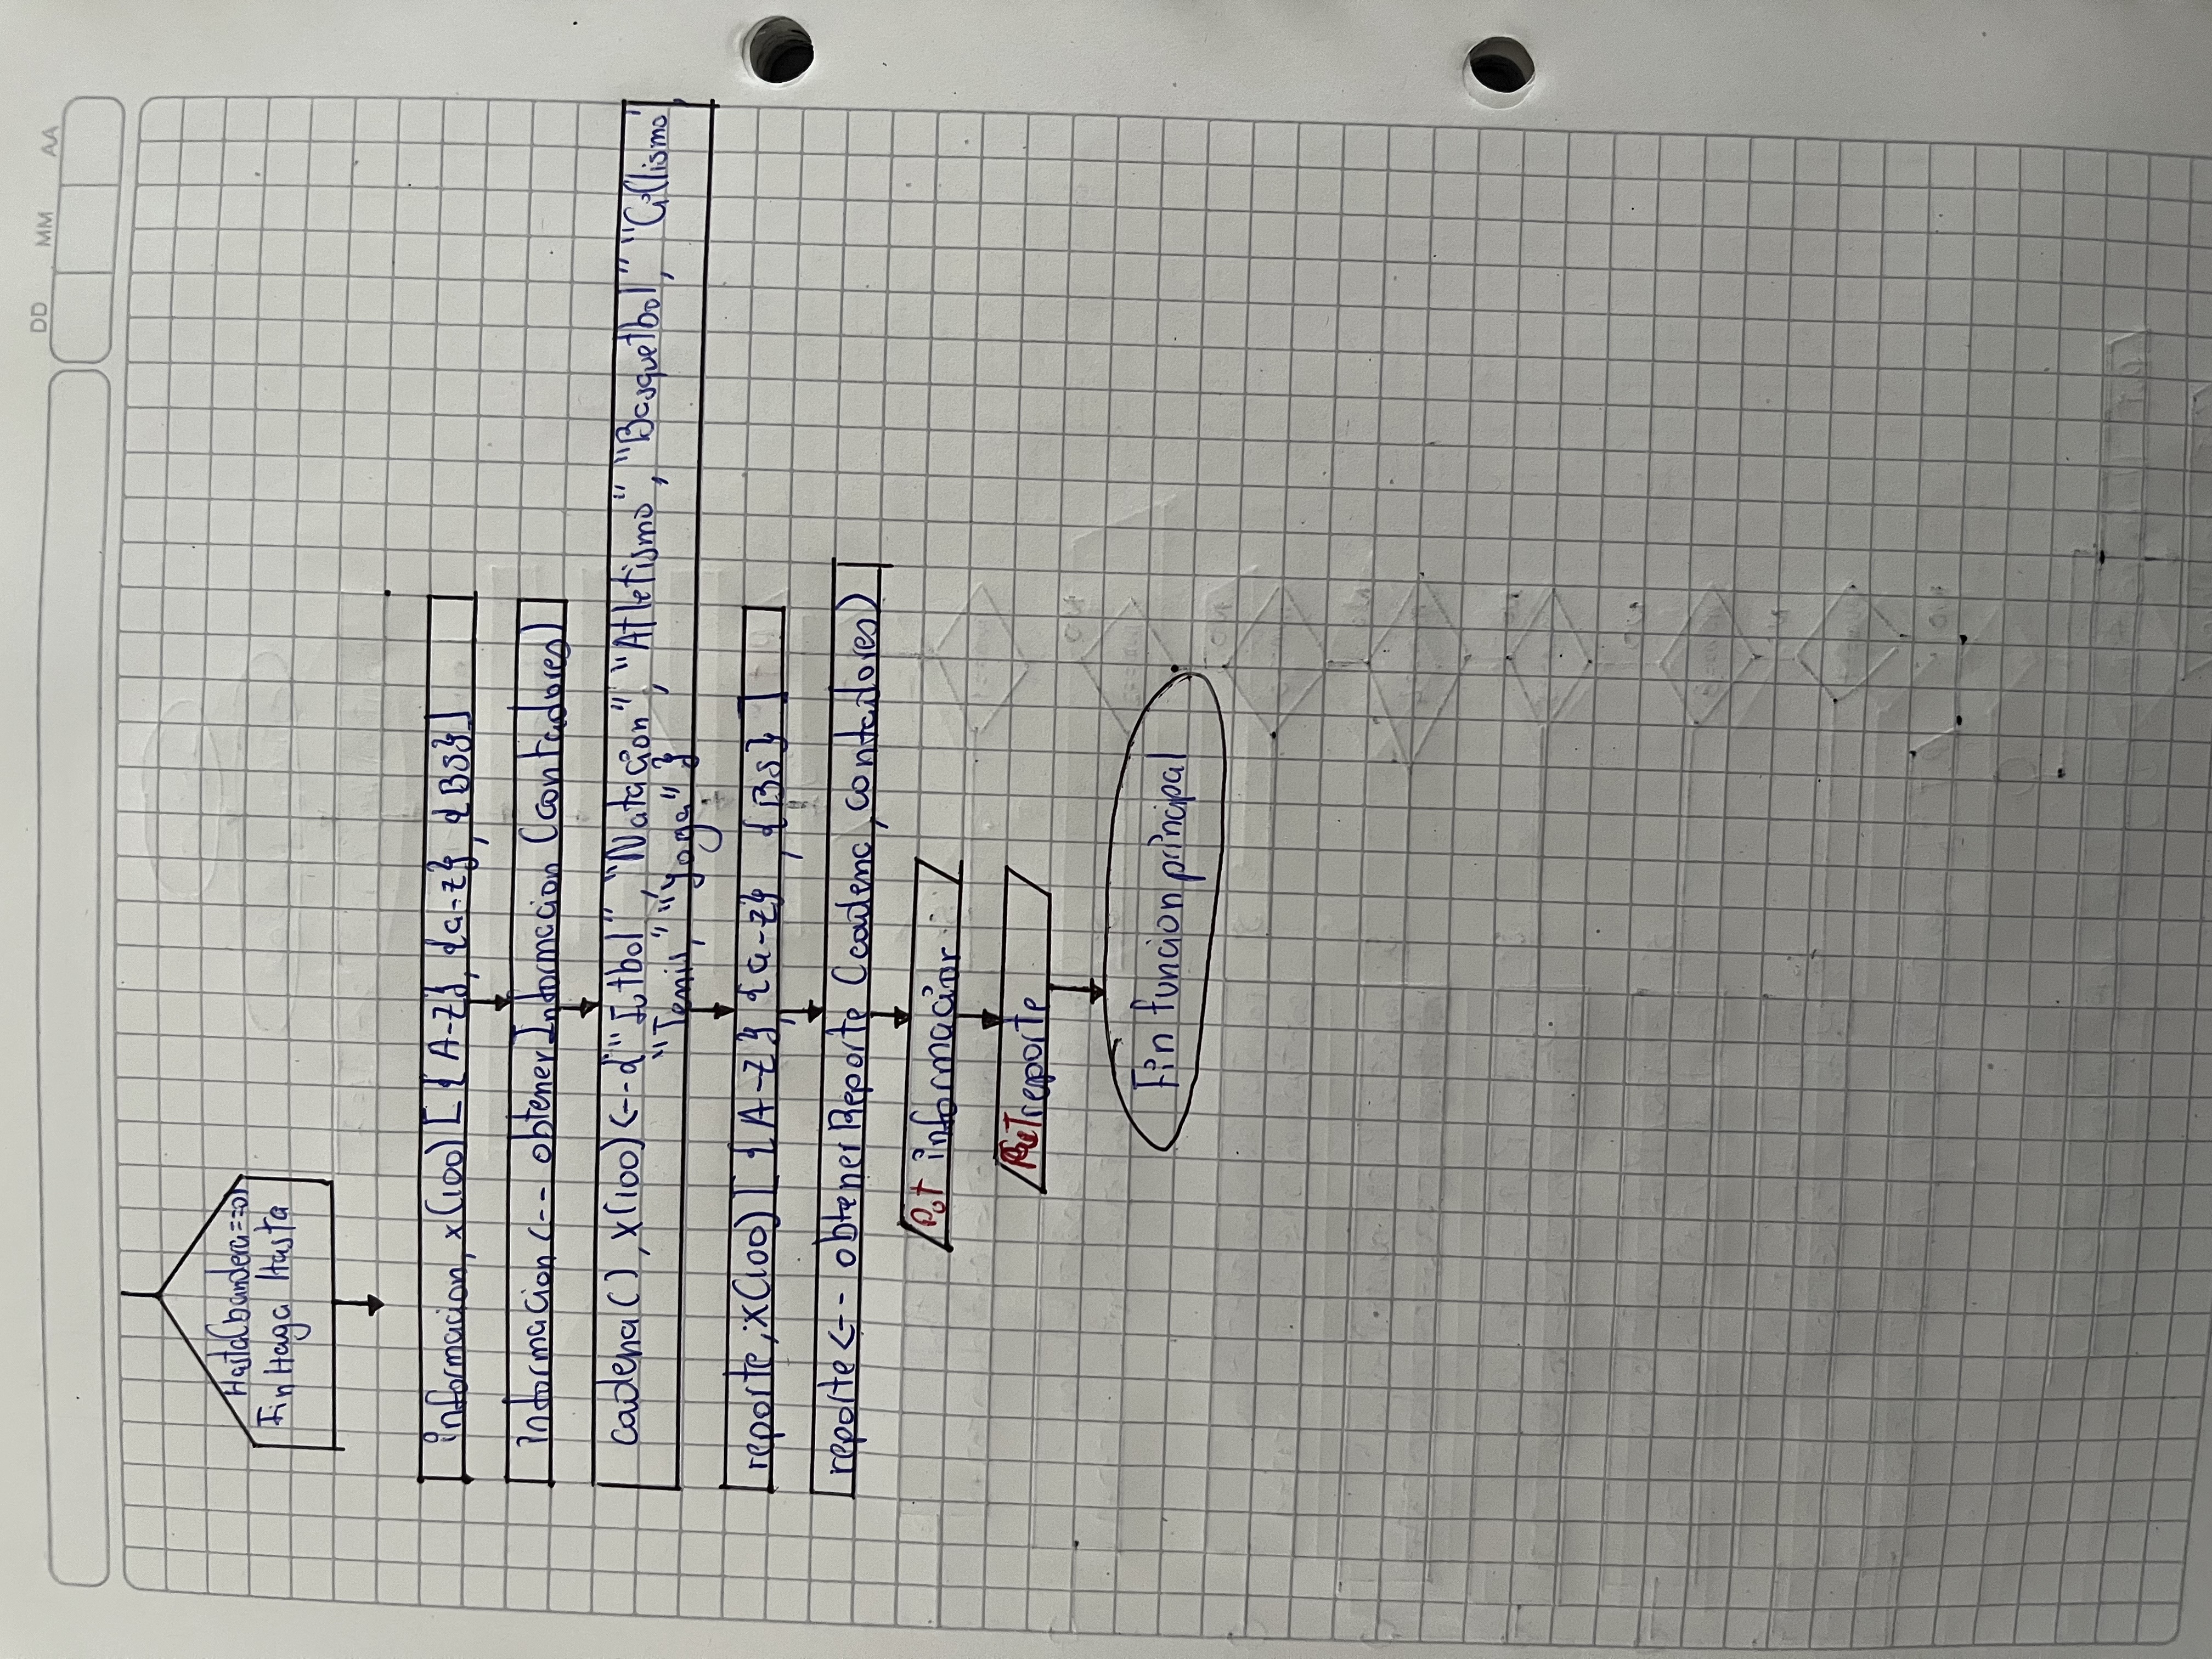 DD MM AA
Hasta(bandera==0)
Fin Haga Hasta
informacion, x(100) [ {A-Z}, {a-z}, {BS}]
informacion <-- obtenerInformacion (contadores)
cadena( ), x(100) <-- {"Futbol", "Natacion", "Atletismo", "Basquetbol", "Ciclismo"
"Tenis," "Yoga" }
reporte, x(100) [ {A-Z}, {a-z} , {BS} ]
reporte <-- obtenerReporte (cadena, contadores)
Put informacion
Put reporte
Fin funcion principal